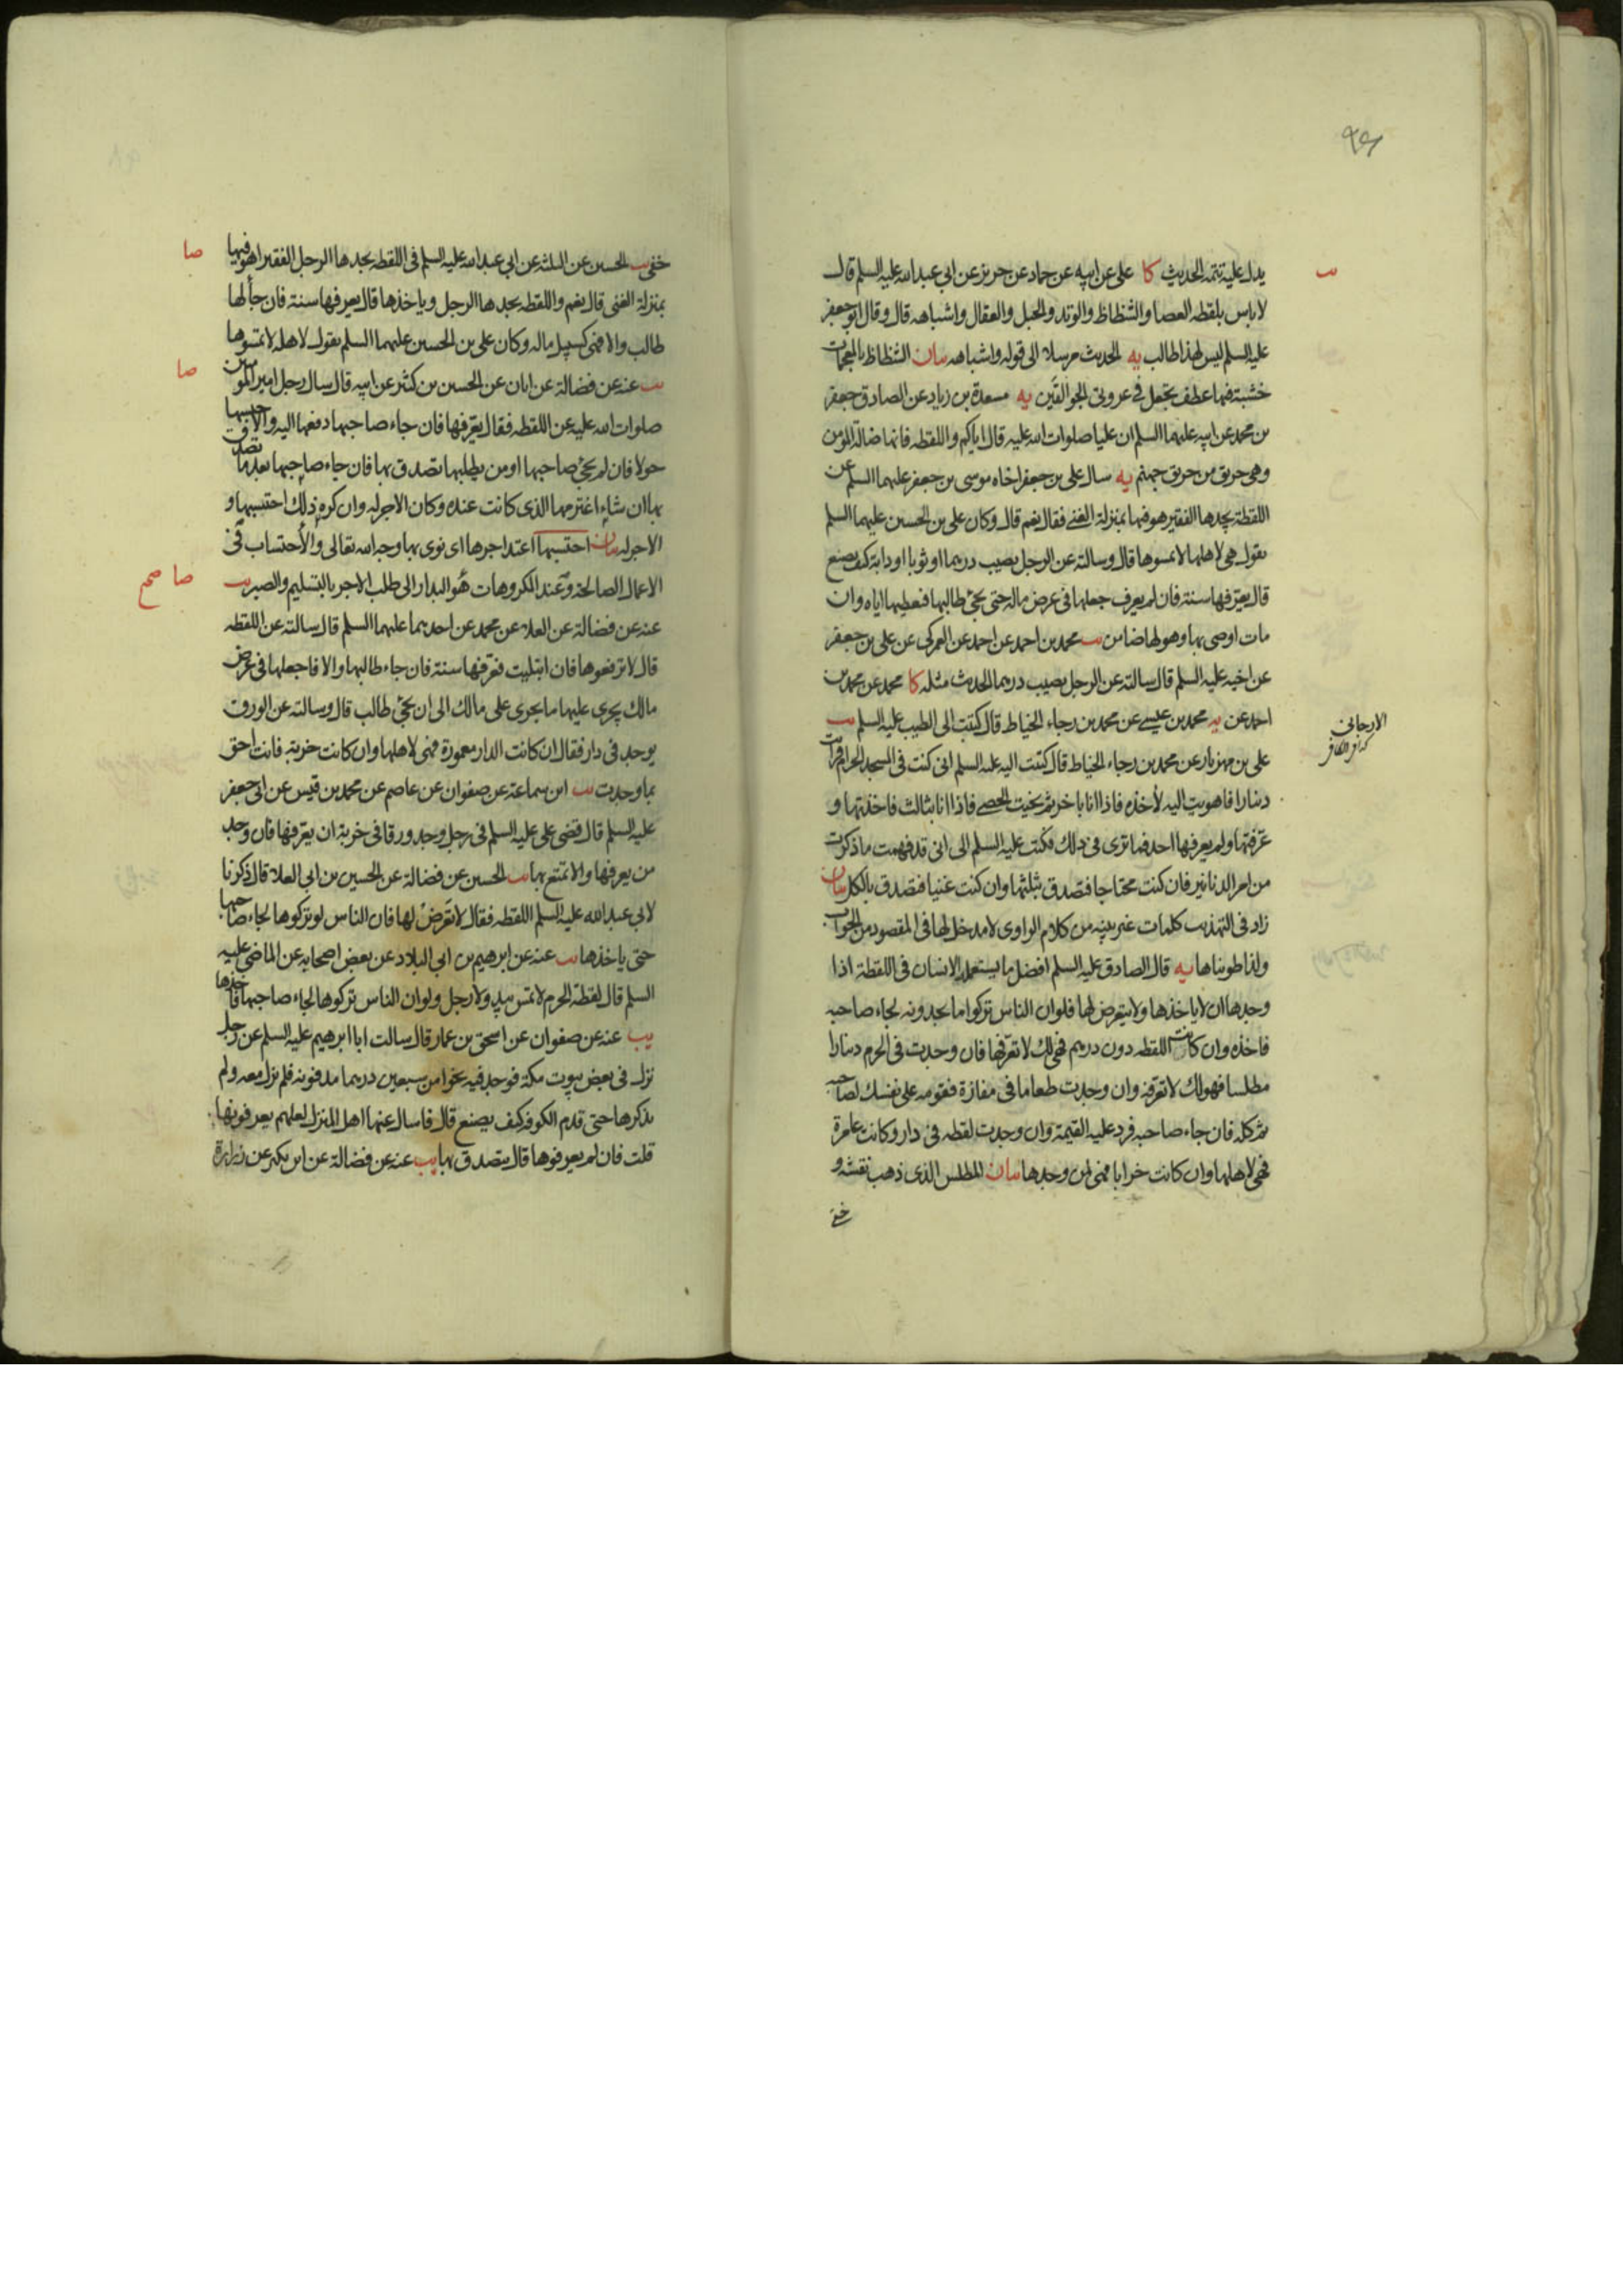 ٩٧
يدل عليه تتمة الحديث كا علي عن ابيه عن حماد عن حريز عن ابي عبد الله عليه السلم قال
لا باس بلقطه العصا والشظاظ والوتد والحبل والعقال واشباهه قال وقال ابو جعفر
عليه السلم ليس لهذا طالب يه الحديث مرسلا الى قوله واشباهه بيان الشظاظ بالمعجمات
خشبة فيها عطف تجعل في عروتي الجوالقين يه مسعدة بن زياد عن الصادق جعفر
بن محمد عن ابيه عليهما السلم ان عليا صلوات الله عليه قال اياكم واللقطه فانها ضالة المؤمن
وهي حريق من حريق جهنم يه سال علي بن جعفر اخاه موسى بن جعفر عليهما السلم عن
اللقطة يجدها الفقير هو فيها بمنزلة الغني فقال نعم قال وكان علي بن الحسين عليهما السلم
يقول هي لاهلها لا تمسوها قال وسالته عن الرجل يصيب درهما او ثوبا او دابة كيف يصنع
قال يعرفها سنة فان لم يعرف جعلها في عرض ماله حتى يجئ طالبها فيعطيها اياه وان
مات اوصى بها وهو لها ضامن يب محمد بن احمد عن احمد عن العمركي عن علي بن جعفر
عن اخيه عليه السلم قال سالته عن الرجل يصيب درهما الحديث مثله كا محمد عن محمد بن
احمد عن يه محمد بن عيسى عن محمد بن رجاء الخياط قال كتبت الى الطيب عليه السلم يب
الارجاني
علي بن مهزيار عن محمد بن رجاء الخياط قال كتبت اليه عليه السلم اني كنت في المسجد الحرام فرايت
دينارا فاهويت اليه لأخذه فاذا انا باخر ثم بحثت الحصى فاذا انا بثالث فاخذتها و
عرفتها ولم يعرفها احد فما ترى في ذلك فكتب عليه السلم الي اني قد فهمت ما ذكرت
من امر الدنانير فان كنت محتاجا فتصدق بثلثها وان كنت غنيا فتصدق بالكل بيان
زاد في التهذيب كلمات غير بينه من كلام الراوي لا مدخل لها في المقصود من الجواب
ولذا طويناها يه قال الصادق عليه السلم افضل ما يستعمله الانسان في اللقطة اذا
وجدها ان لا ياخذها ولا يتعرض لها فلو ان الناس تركوا ما يجدونه لجاء صاحبه
فاخذه وان كانت اللقطه دون درهم فهي لك لا تعرفها فان وجدت في الحرم دينارا
مطلسا فهو لك لا تعرفه وان وجدت طعاما في مفازة فقومه على نفسك لصاحبه
ثم كله فان جاء صاحبه فرد عليه القيمة وان وجدت لقطه في دار وكانت عامرة
فهي لاهلها وان كانت خرابا فهي لمن وجدها بيان المطلس الذي ذهب نقشه و
خفي
خفي يب الحسين عن الثلثة عن ابي عبد الله عليه السلم في اللقطه يجدها الرجل الفقير اهو فيها
صا
بمنزلة الغني قال نعم واللقطه يجدها الرجل وياخذها قال يعرفها سنة فان جاء لها
طالب والا فهي كسبيل ماله وكان علي بن الحسين عليهما السلم يقول لاهله لا تمسوها
يب عنه عن فضالة عن ابان عن الحسين بن كثير عن ابيه قال سال رجل امير المؤمنين
صا
صلوات الله عليه عن اللقطه فقال يعرفها فان جاء صاحبها دفعها اليه والا حبسها
حولا فان لم يجئ صاحبها او من يطلبها تصدق بها فان جاء صاحبها بعد ما تصدق
بها ان شاء اغترمها الذي كانت عنده وكان الاجر له وان كره ذلك احتسبها و
الاجر له بيان احتسبها اعتد اجرها اي نوى بها وجه الله تعالى والأحتساب في
الاعمال الصالحة وعند المكروهات هو البدار الى طلب الاجر بالتسليم والصبر يب
صا صح
عنه عن فضالة عن العلا عن محمد عن احدهما عليهما السلم قال سالته عن اللقطه
قال لا ترفعوها فان ابتليت فعرفها سنة فان جاء طالبها والا فاجعلها في عرض
مالك يجرى عليها ما يجرى على مالك الى ان يجئ طالب قال وسالته عن الورق
يوجد في دار فقال ان كانت الدار معمورة فهي لاهلها وان كانت خربة فانت احق
بما وجدت يب ابن سماعة عن صفوان عن عاصم عن محمد بن قيس عن ابي جعفر
عليه السلم قال قضى علي عليه السلم في رجل وجد ورقا في خربة ان يعرفها فان وجد
من يعرفها والا تمتع بها يب الحسين عن فضالة عن الحسين بن ابي العلا قال ذكرنا
لابي عبد الله عليه السلم اللقطه فقال لا تعرض لها فان الناس لو تركوها لجاء صاحبها
حتى ياخذها يب عنه عن ابرهيم بن ابي البلاد عن بعض اصحابه عن الماضي عليه
السلم قال لقطة الحرم لا تمس بيد ولا رجل ولو ان الناس تركوها لجاء صاحبها فاخذها
يب عنه عن صفوان عن اسحق بن عمار قال سالت ابا ابرهيم عليه السلم عن رجل
نزل في بعض بيوت مكة فوجد فيه نحوا من سبعين درهما مدفونه فلم تزل معه ولم
يذكرها حتى قدم الكوفه كيف يصنع قال فاسال عنها اهل المنزل لعلهم يعرفونها
قلت فان لم يعرفوها قال يتصدق بها يب عنه عن فضالة عن ابن بكير عن زرارة